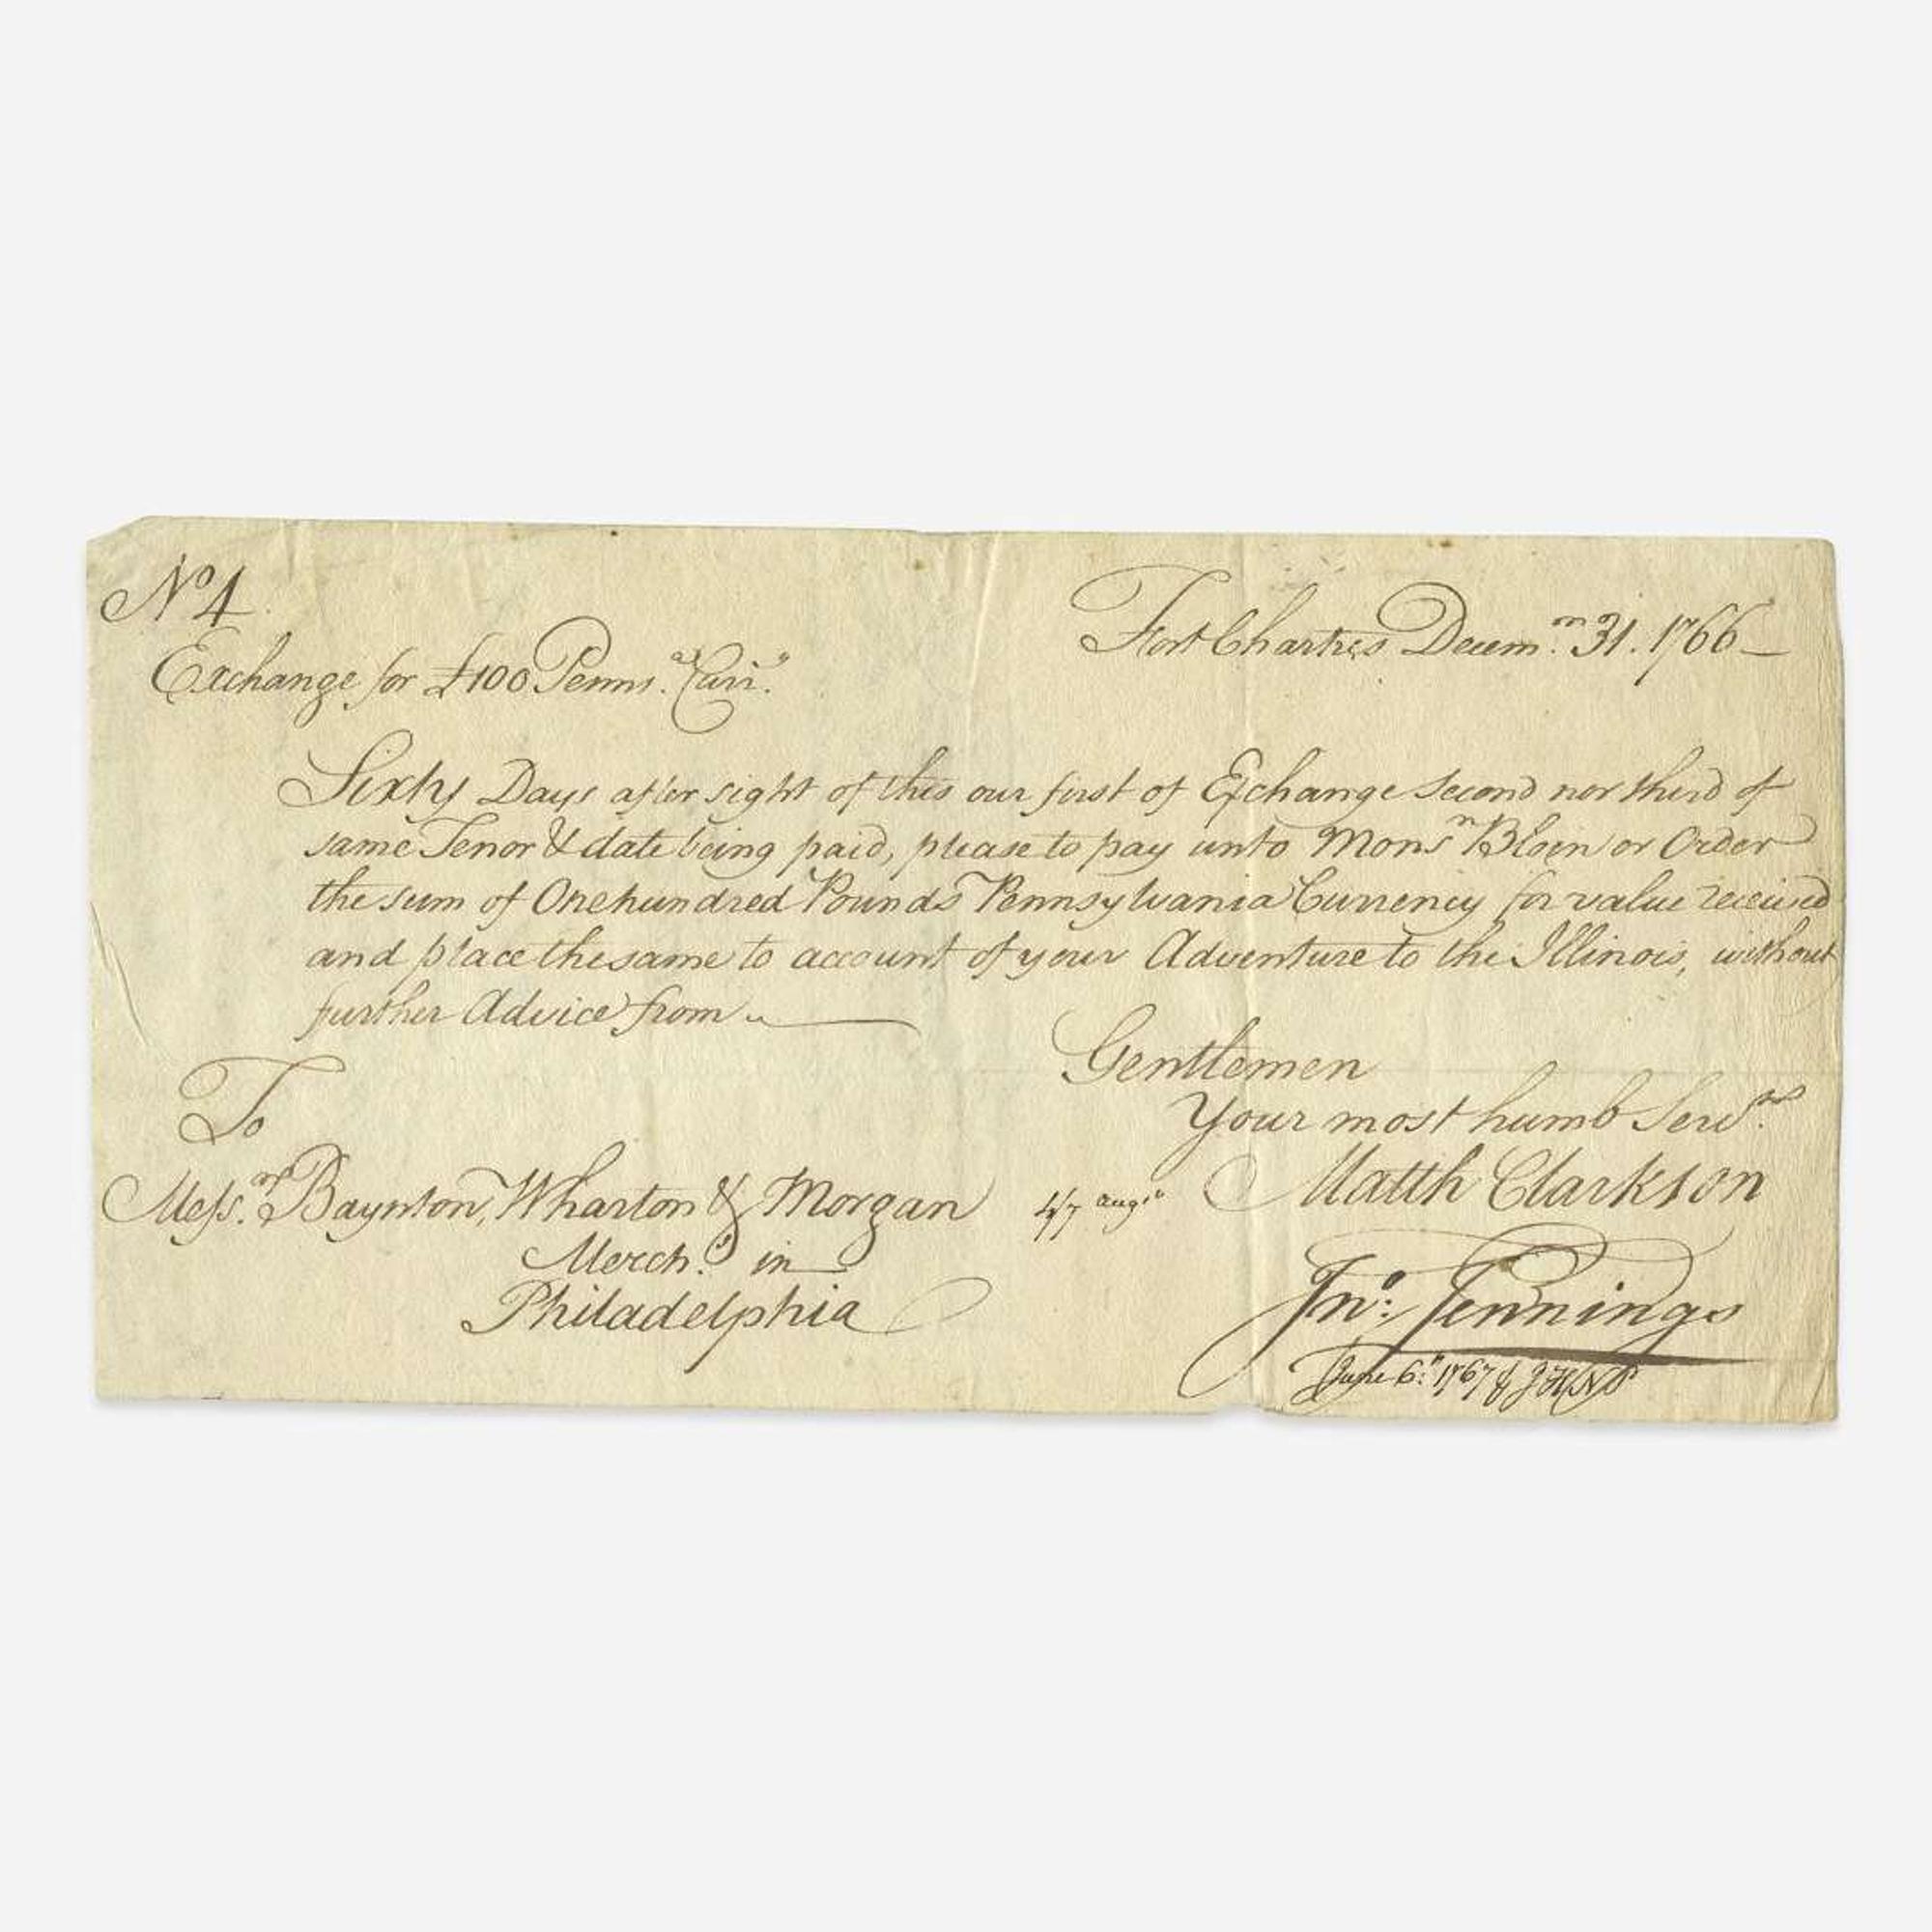 No 4
Fort Chartres Decemr. 31. 1766
Exchange for £100 Pennsa. Curry.
Sixty Days after sight of this our first of Exchange Second nor third of
same Tenor & date being paid, please to pay unto Monsr Bloin or Order
the sum of One hundred Pounds Pennsylvania Currency for value received
and place the same to account of your Adventure to the Illinois, without
further Advice from
Gentlemen
Your most humb Servts.
To
Messrs. Baynton, Wharton & Morgan
4/7 Augst
Matth Clarkson
Merchts. in
Philadelphia
Jno: Jennings
June 6th: 1767